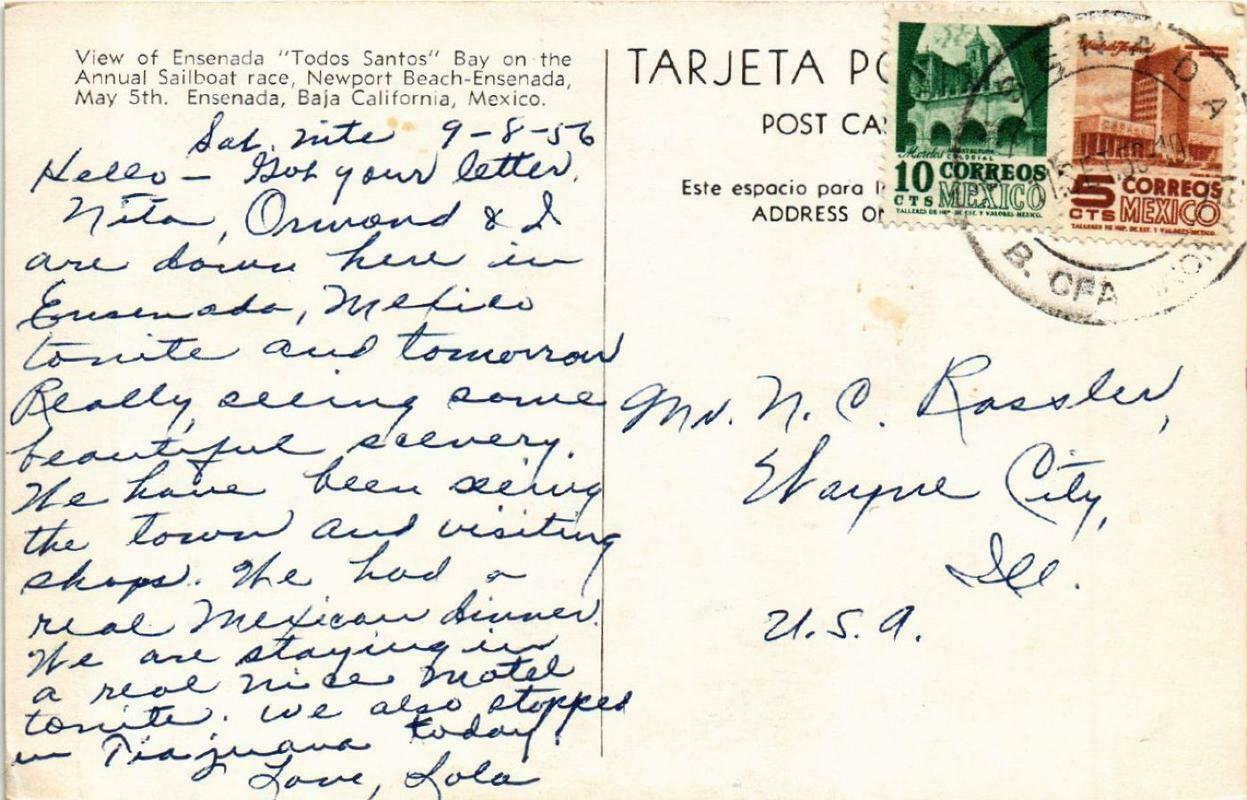 View of Ensenada "Todos Santos" Bay on the
Annual Sailboat race, Newport Beach-Ensenada,
May 5th. Ensenada, Baja California, Mexico.
Sat. nite 9-8-56
Hello - Got your letter.
Nita, Ormond & I
are down here in
Ensenada, Mexico
tonite and tomorrow
Really seeing some
beautiful scenery.
We have been seeing
the town and visiting
shops. We had a
real Mexican dinner.
We are staying in
a real nice Motel
tonite. We also stopped
in Tiajuana today.
Love, Lola
TARJETA PO
POST CA
Este espacio para l
ADDRESS ON
Morelos ARQUITECTURA
COLONIAL
10 CORREOS
CTS MEXICO
TALLERES DE IMP. DE EST. Y VALORES-MEXICO.
5 CORREOS
CTS MEXICO
TALLERES DE IMP. DE EST. Y VALORES-MEXICO.
B. CFA
Mr. N. C. Rassler,
Wayne City,
Ill.
U.S.A.